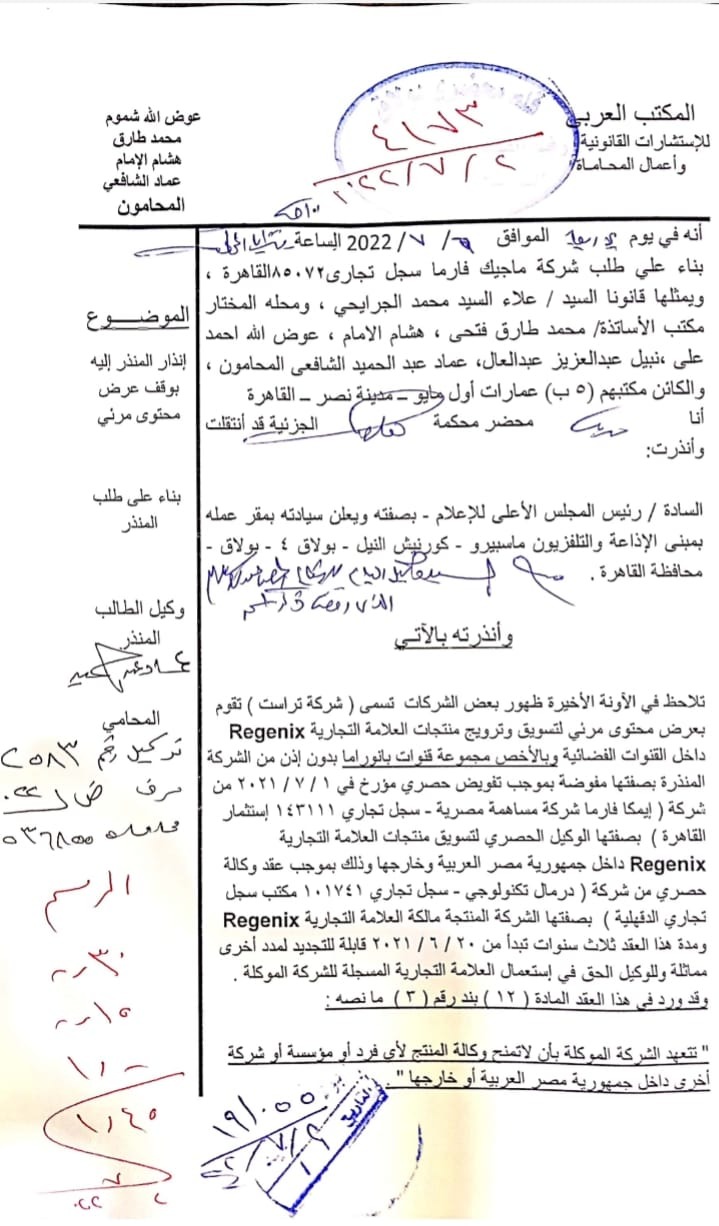 المكتب العربي
للإستشارات القانونية
وأعمال المحاماة
٤١٧٣
٢٠٢٢/٧/٢
عوض الله شموم
محمد طارق
هشام الإمام
عماد الشافعي
المحامون
أنه في يوم الموافق / ٧ /2022 الساعة
بناء علي طلب شركة ماجيك فارما سجل تجارى٨٥٠٧٢القاهرة ،
ويمثلها قانونا السيد / علاء السيد محمد الجرايحي ، ومحله المختار
مكتب الأساتذة/ محمد طارق فتحى ، هشام الامام ، عوض الله احمد
على ،نبيل عبدالعزيز عبدالعال، عماد عبد الحميد الشافعى المحامون ،
والكائن مكتبهم (٥ ب) عمارات أول مايو – مدينة نصر – القاهرة
أنا محضر محكمة الجزئية قد أنتقلت
وأنذرت:
السادة / رئيس المجلس الأعلى للإعلام - بصفته ويعلن سيادته بمقر عمله
بمبنى الإذاعة والتلفزيون ماسبيرو - كورنيش النيل - بولاق ٤ - بولاق -
محافظة القاهرة .
وأنذرته بالآتي
تلاحظ في الآونة الأخيرة ظهور بعض الشركات تسمى ( شركة تراست ) تقوم
بعرض محتوى مرئي لتسويق وترويج منتجات العلامة التجارية Regenix
داخل القنوات الفضائية وبالأخص مجموعة قنوات بانوراما بدون إذن من الشركة
المنذرة بصفتها مفوضة بموجب تفويض حصري مؤرخ في ١ / ٧ / ٢٠٢١ من
شركة ( إيمكا فارما شركة مساهمة مصرية - سجل تجاري ١٤٣١١١ إستثمار
القاهرة ) بصفتها الوكيل الحصري لتسويق منتجات العلامة التجارية
Regenix داخل جمهورية مصر العربية وخارجها وذلك بموجب عقد وكالة
حصري من شركة ( درمال تكنولوجي - سجل تجاري ١٠١٧٤١ مكتب سجل
تجاري الدقهلية ) بصفتها الشركة المنتجة مالكة العلامة التجارية Regenix
ومدة هذا العقد ثلاث سنوات تبدأ من ٢٠ / ٦ / ٢٠٢١ قابلة للتجديد لمدد أخرى
مماثلة وللوكيل الحق في إستعمال العلامة التجارية المسجلة للشركة الموكلة .
وقد ورد في هذا العقد المادة ( ١٢ ) بند رقم ( ٣ ) ما نصه :
" تتعهد الشركة الموكلة بأن لاتمنح وكالة المنتج لأي فرد أو مؤسسة أو شركة
أخرى داخل جمهورية مصر العربية أو خارجها " .
الموضـــوع
إنذار المنذر إليه
بوقف عرض
محتوى مرئي
بناء على طلب
المنذر
وكيل الطالب
المنذر
المحامي
توكيل رقم
الرسم
التاريخ